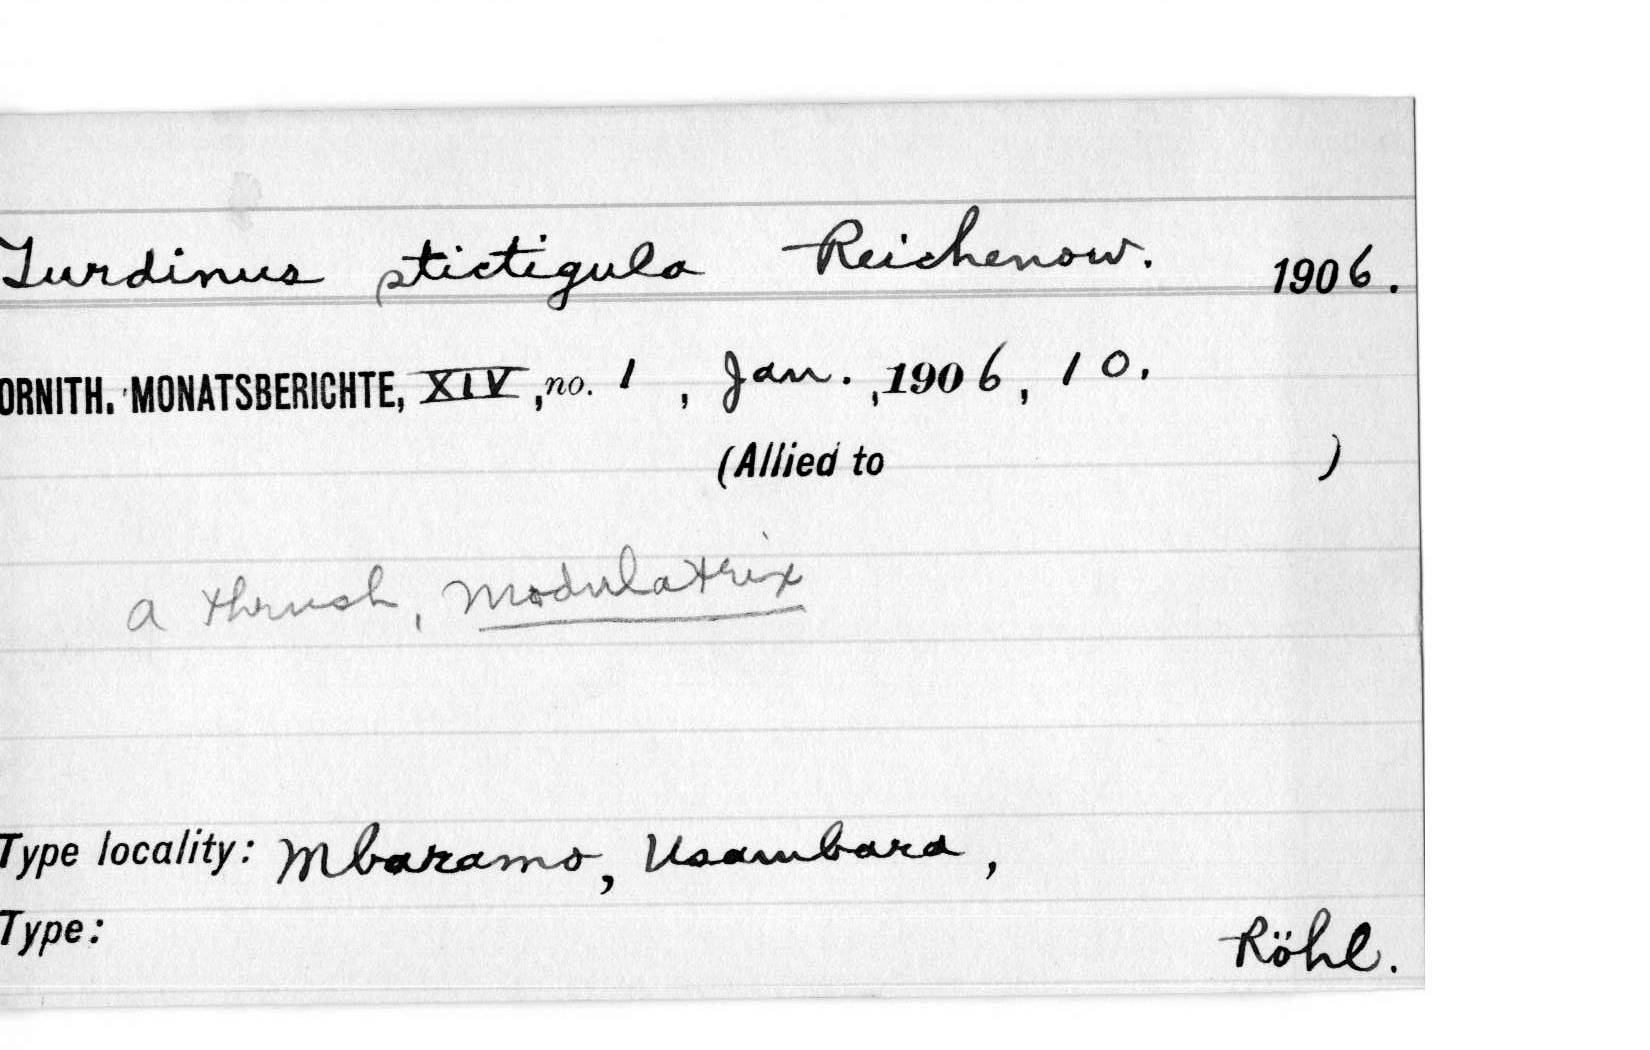 Turdinus stictigula Reichenow. 1906.
ORNITH. MONATSBERICHTE, XIV, no. 1, Jan., 1906, 10.
(Allied to )
a thrush, Modulatrix
Type locality: Mbaramo, Usambara,
Type:
Röhl.